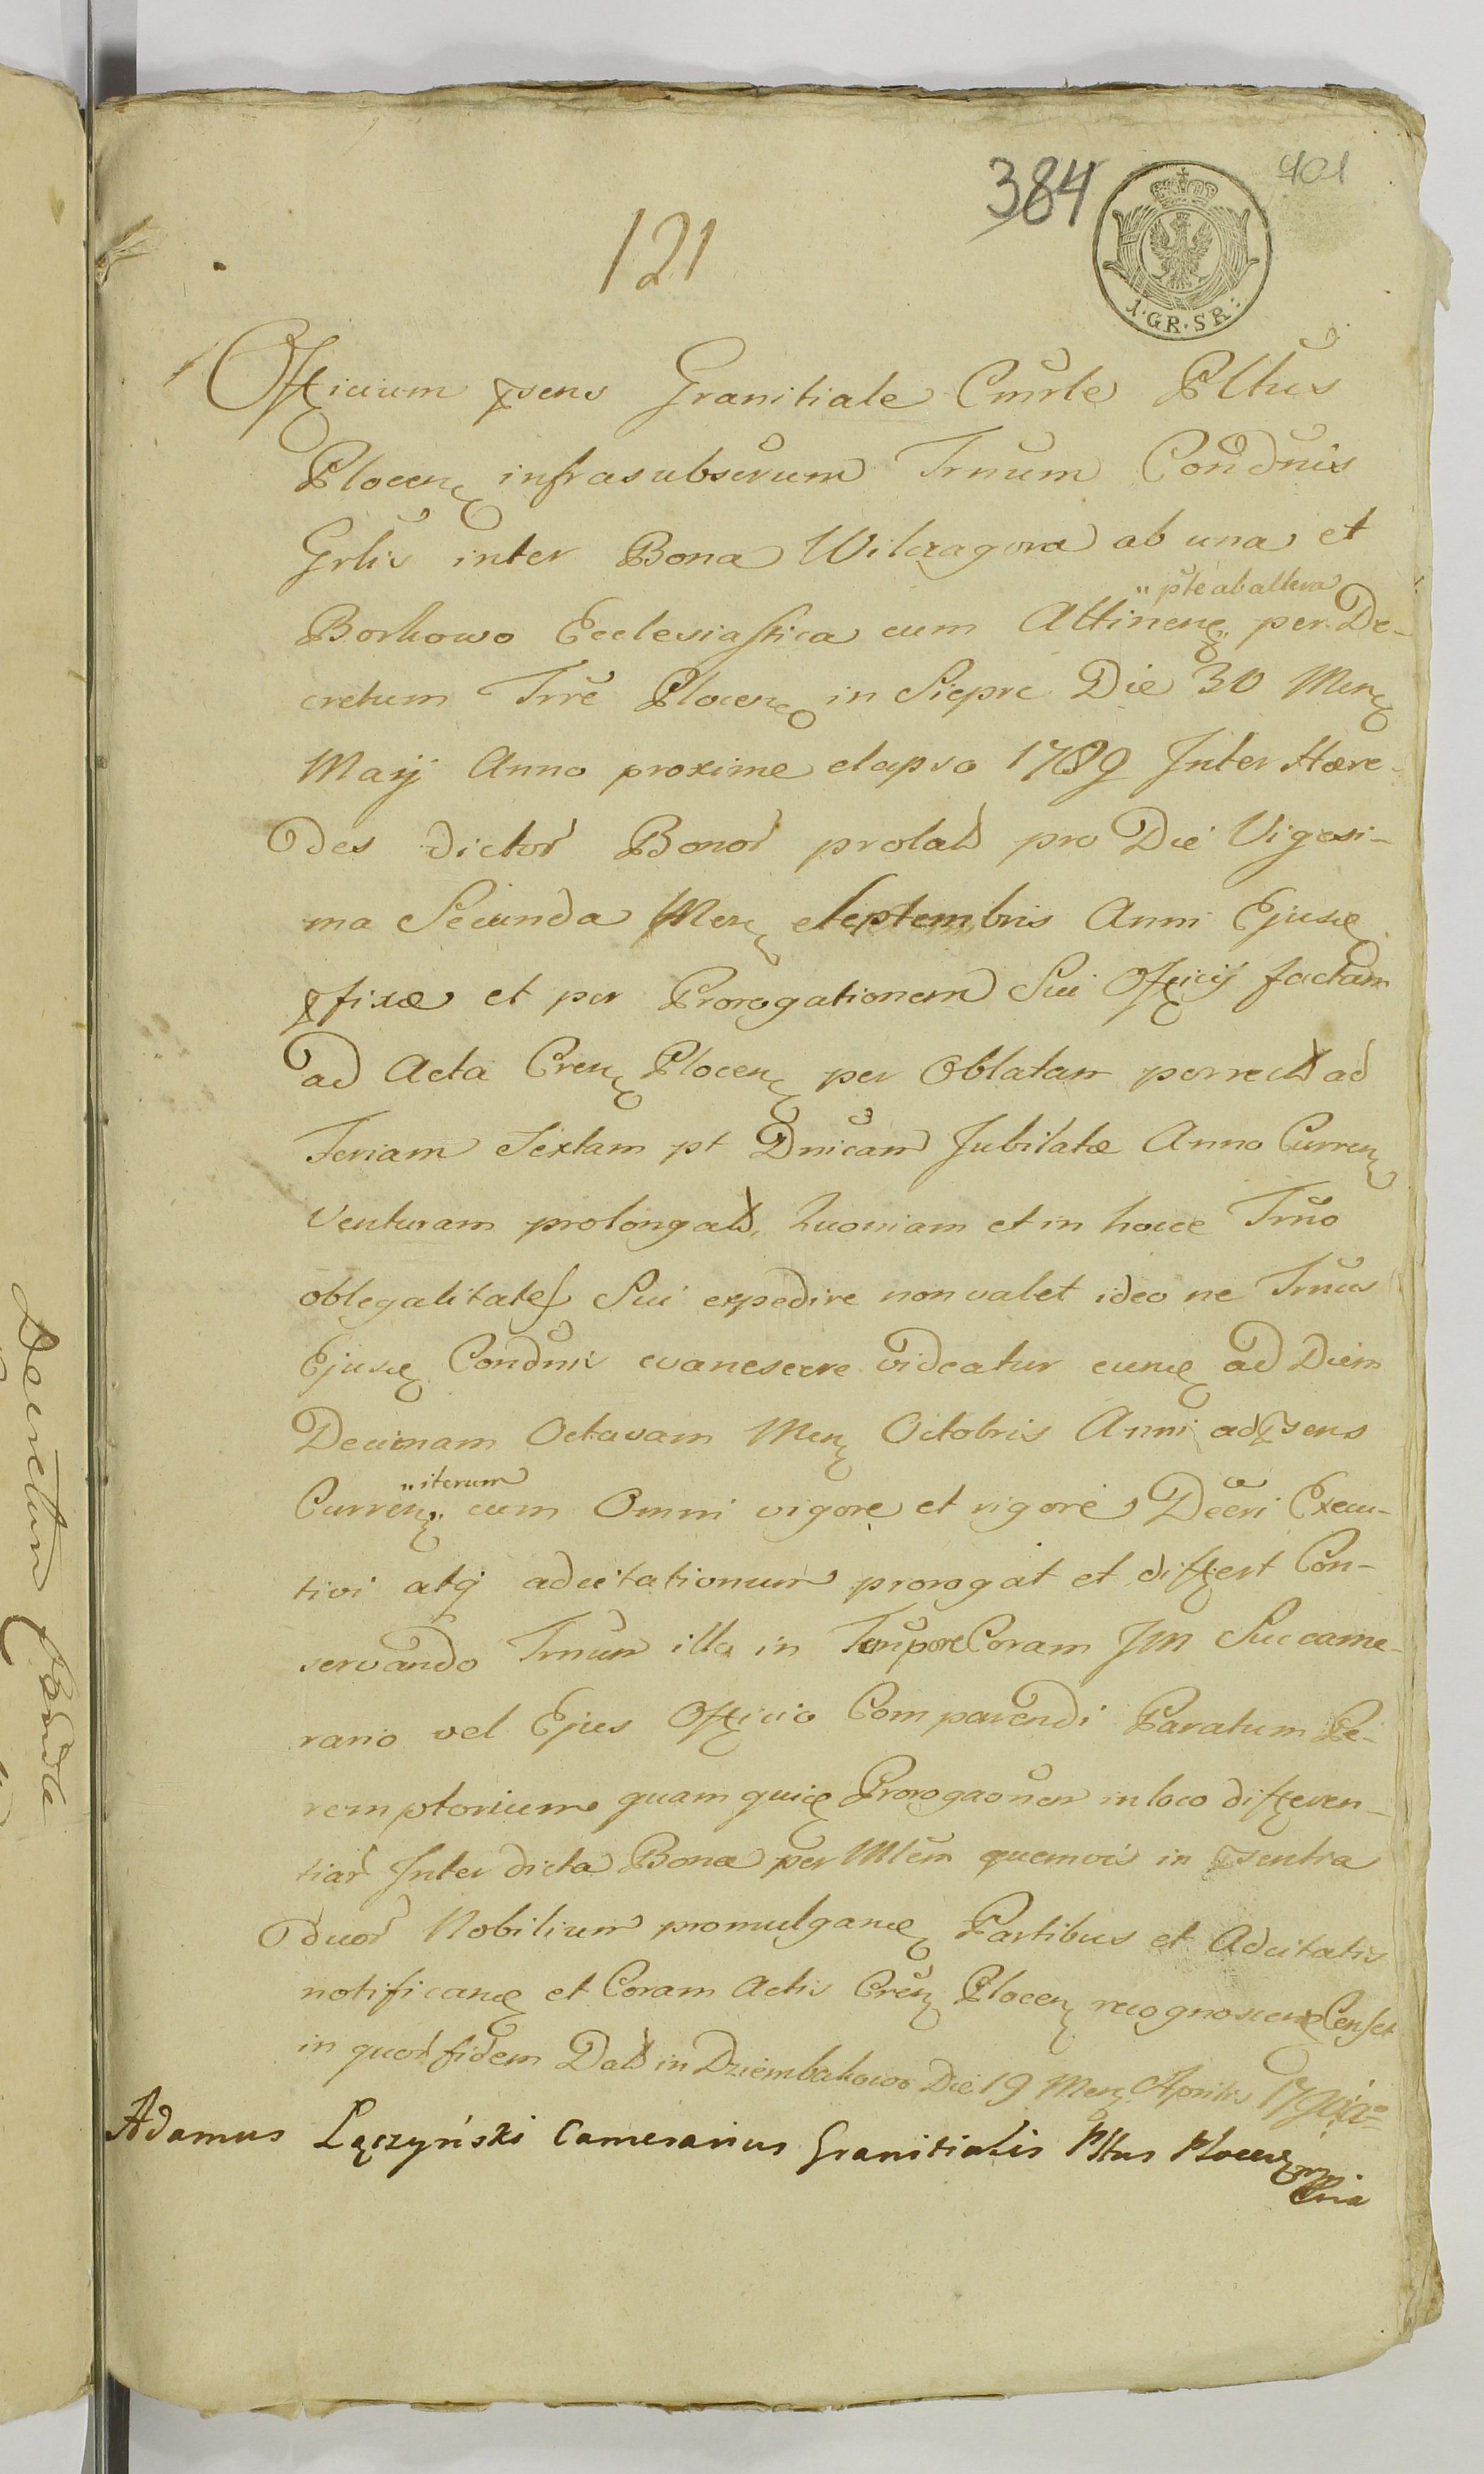 384
401
121
1·GR·SR:
Officium p̃sens Granitiale Cmrle Pltus
Plocen infrasubscrum Trnum Condnis
Grlis inter Bona Wilczagora ab una et
"pte ab altera
Borkowo Ecclesiastica cum Attinen" per De-
cretum Trre Plocen in Siepre Die 30 Men
Maij Anno proxime elapso 1789 Inter Hære-
des dictor Bonor prolat pro Die Vigesi-
ma Secunda Men Septembris Anni Ejusd
p̃fixæ et per Prorogationem Sui Officij factam
ad Acta Cren Plocen per Oblatam porrect ad
Feriam Sextam pt Dnicam Jubilatæ Anno Curren
Venturam prolongat, Quoniam et in hocce Trno
ob legalitates Sui expedire non valet ideo ne Trnus
Ejusd Condnis evanescere videatur eund ad Diem
Decimam Octavam Men Octobris Anni ad p̃sens
"iterum
Curren" cum Omni vigore et rigore Decri Execu-
tivi atq adcitationum prorogat et differt Con-
servando Trnum illo in Tempore Coram JM Succame-
rario vel Ejus Officio Comparendi Paratum Pe-
remptorium quam quid Prorogaonem in loco differen-
tiar Inter dicta Bona per Mlem quemvis in p̃sentia
duor Nobilium promulgand Partibus et Adcitatis
notificand et Coram Actis Cren Plocen recognoscend Censet
in quor fidem Dat in Dziembakowo Die 19 Men Aprilis 1790
Adamus Łączyński Camerarius Granitialis Pltus Plocen
Decretum Condle